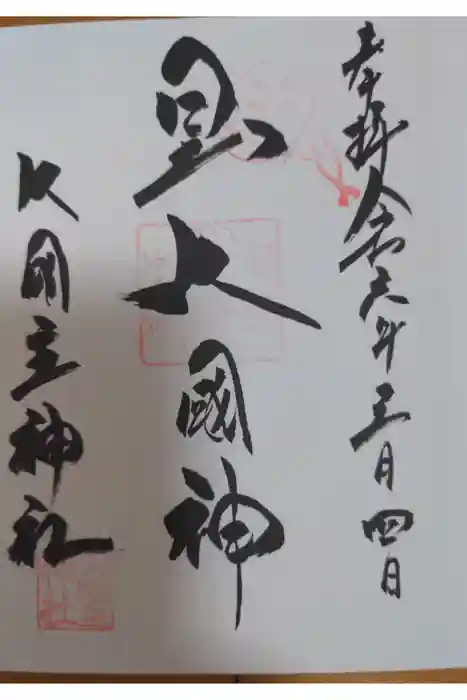 奉拝 令和六年三月四日
日出大國神
大国主神社